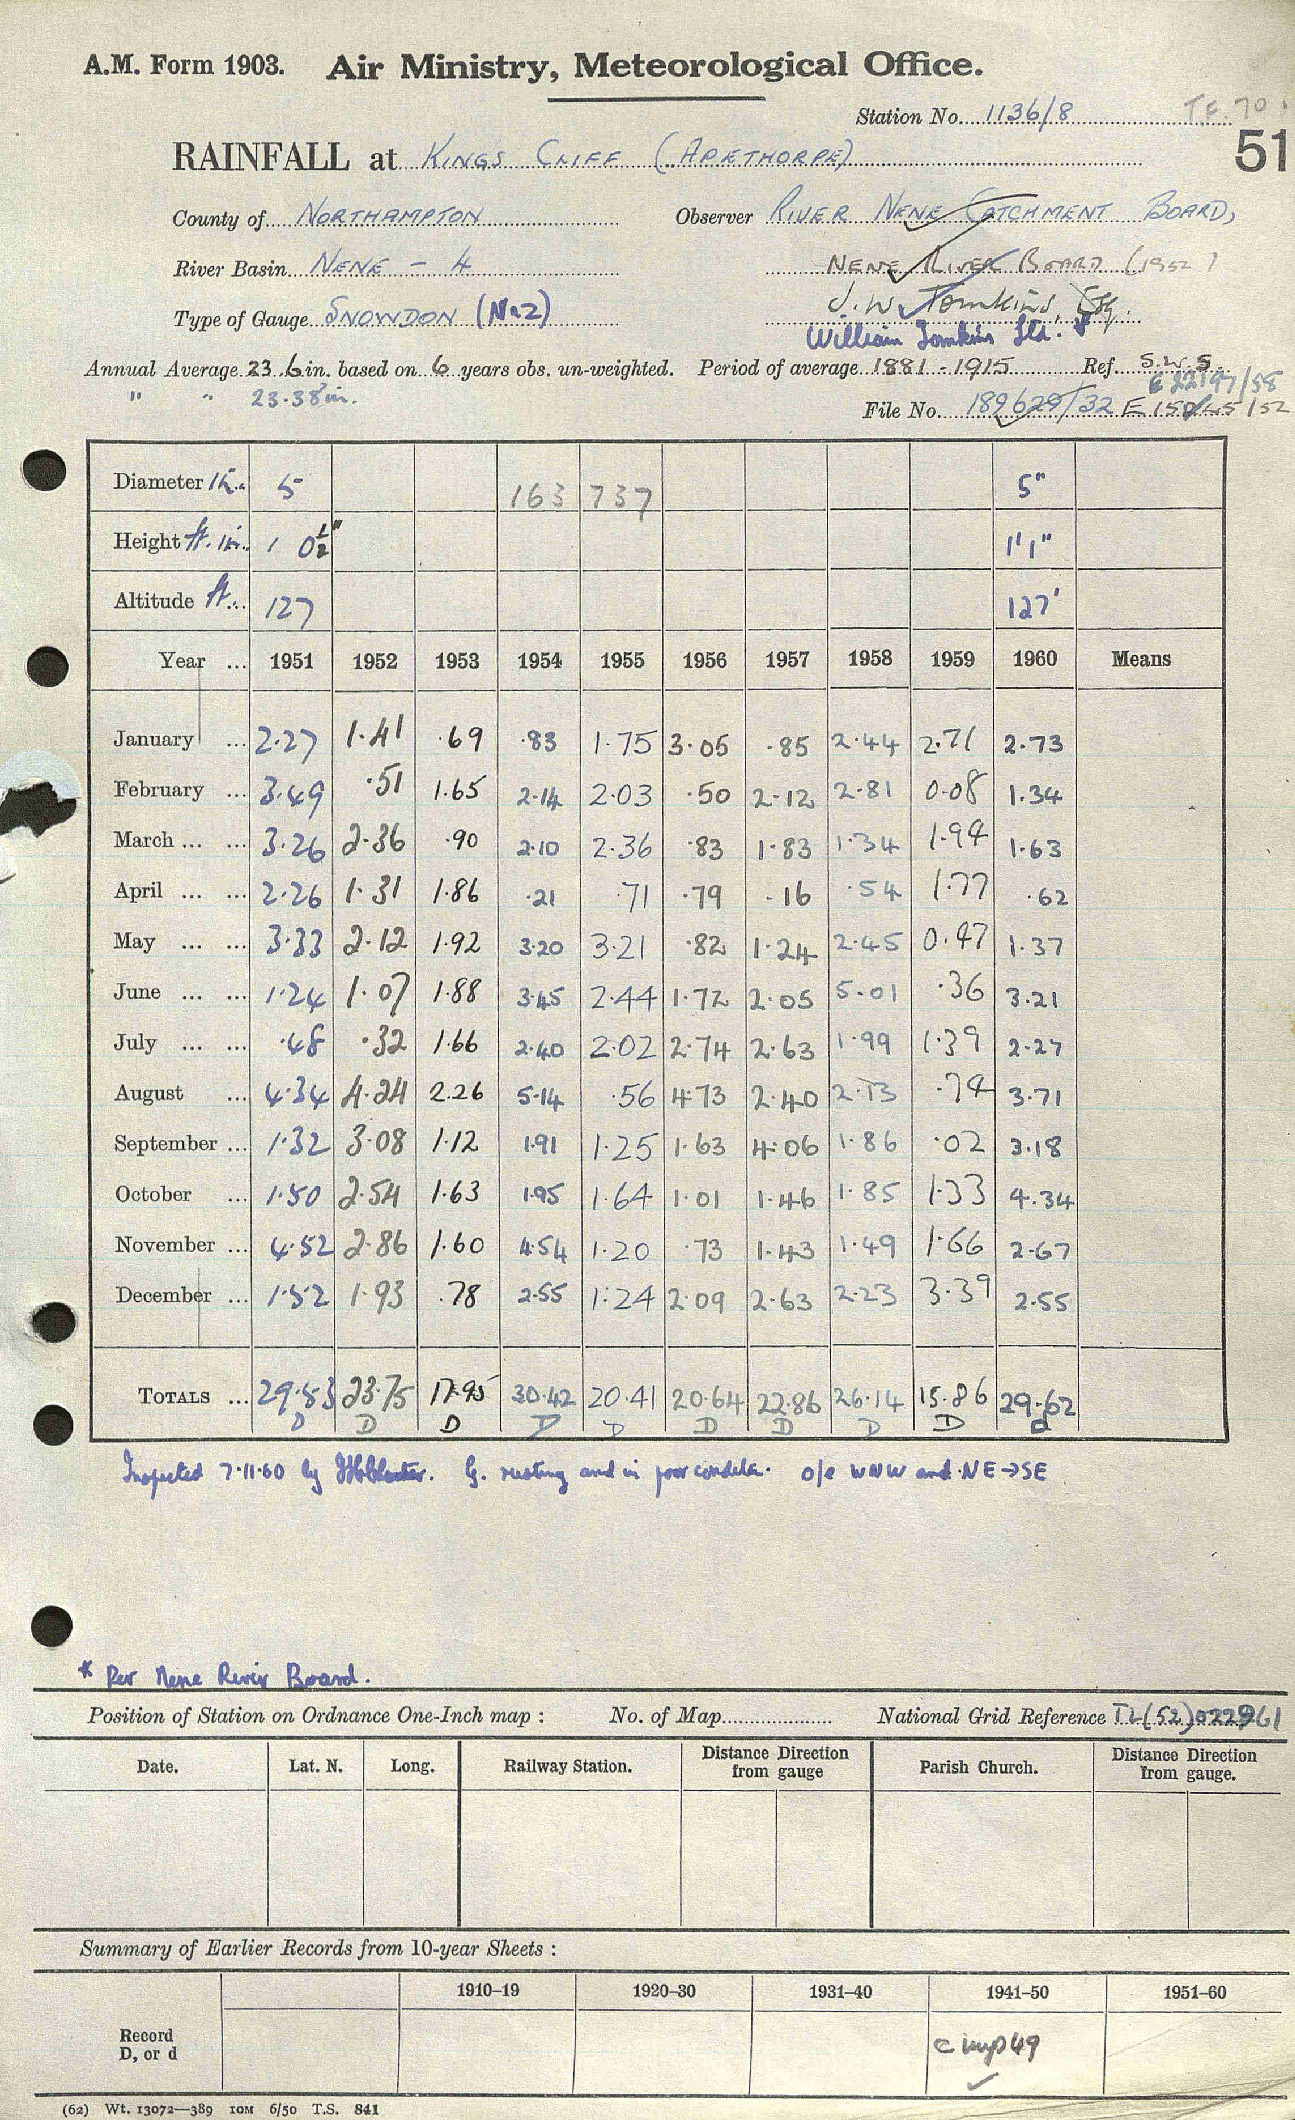 A.M. Form 1903. Air Ministry, Meteorological Office.
Station No. 1136/8 T.F. 70
RAINFALL at KINGS CLIFF (APETHORPE) 51
County of NORTHAMPTON Observer RIVER NENE CATCHMENT BOARD,
River Basin NENE - 4 NENE RIVER BOARD (1952)
Type of Gauge SNOWDON (Mk2) J. W. Tomkins, Esq.
William Tomkins Ltd. *
Annual Average 23.6 in. based on 6 years obs. un-weighted. Period of average 1881 - 1915 Ref. S.W.S.
" " 23.38 in. 622197/58
File No. 189629/32 E 158/45/52
Diameter in. 5 163 737 5"
Height ft. in. 1 0½" 1'1"
Altitude ft. 127 127'
Year ... 1951 1952 1953 1954 1955 1956 1957 1958 1959 1960 Means
January ... 2.27 1.41 .69 .83 1.75 3.05 .85 2.44 2.71 2.73
February ... 3.49 .51 1.65 2.14 2.03 .50 2.12 2.81 0.08 1.34
March ... ... 3.26 2.36 .90 2.10 2.36 .83 1.83 1.34 1.94 1.63
April ... ... 2.26 1.31 1.86 .21 .71 .79 .16 .54 1.77 .62
May ... ... 3.33 2.12 1.92 3.20 3.21 .82 1.24 2.45 0.47 1.37
June ... ... 1.24 1.07 1.88 3.45 2.44 1.72 2.05 5.01 .36 3.21
July ... ... .48 .32 1.66 2.40 2.02 2.74 2.63 1.99 1.39 2.27
August ... 4.34 4.24 2.26 5.14 .56 4.73 2.40 2.13 .74 3.71
September ... 1.32 3.08 1.12 1.91 1.25 1.63 4.06 1.86 .02 3.18
October ... 1.80 2.54 1.63 1.95 1.64 1.01 1.46 1.85 1.33 4.34
November ... 4.52 2.86 1.60 4.54 1.20 .73 1.43 1.49 1.66 2.67
December ... 1.52 1.93 .78 2.55 1.24 2.09 2.63 2.23 3.39 2.55
TOTALS ... 29.83 23.75 17.95 30.42 20.41 20.64 22.86 26.14 15.86 29.62
D D D D D D D D D d
Inspected 7.11.60 by G. rusting and in poor condtn. o/e WNW and NE→SE
* Per Nene River Board.
Position of Station on Ordnance One-Inch map : No. of Map National Grid Reference TL(52)022961
Date. Lat. N. Long. Railway Station. Distance from gauge Direction Parish Church. Distance from gauge. Direction
Summary of Earlier Records from 10-year Sheets :
1910–19 1920–30 1931–40 1941–50 1951–60
Record
D, or d
c imp 49
(62) Wt. 13072—389 10M 6/50 T.S. 841